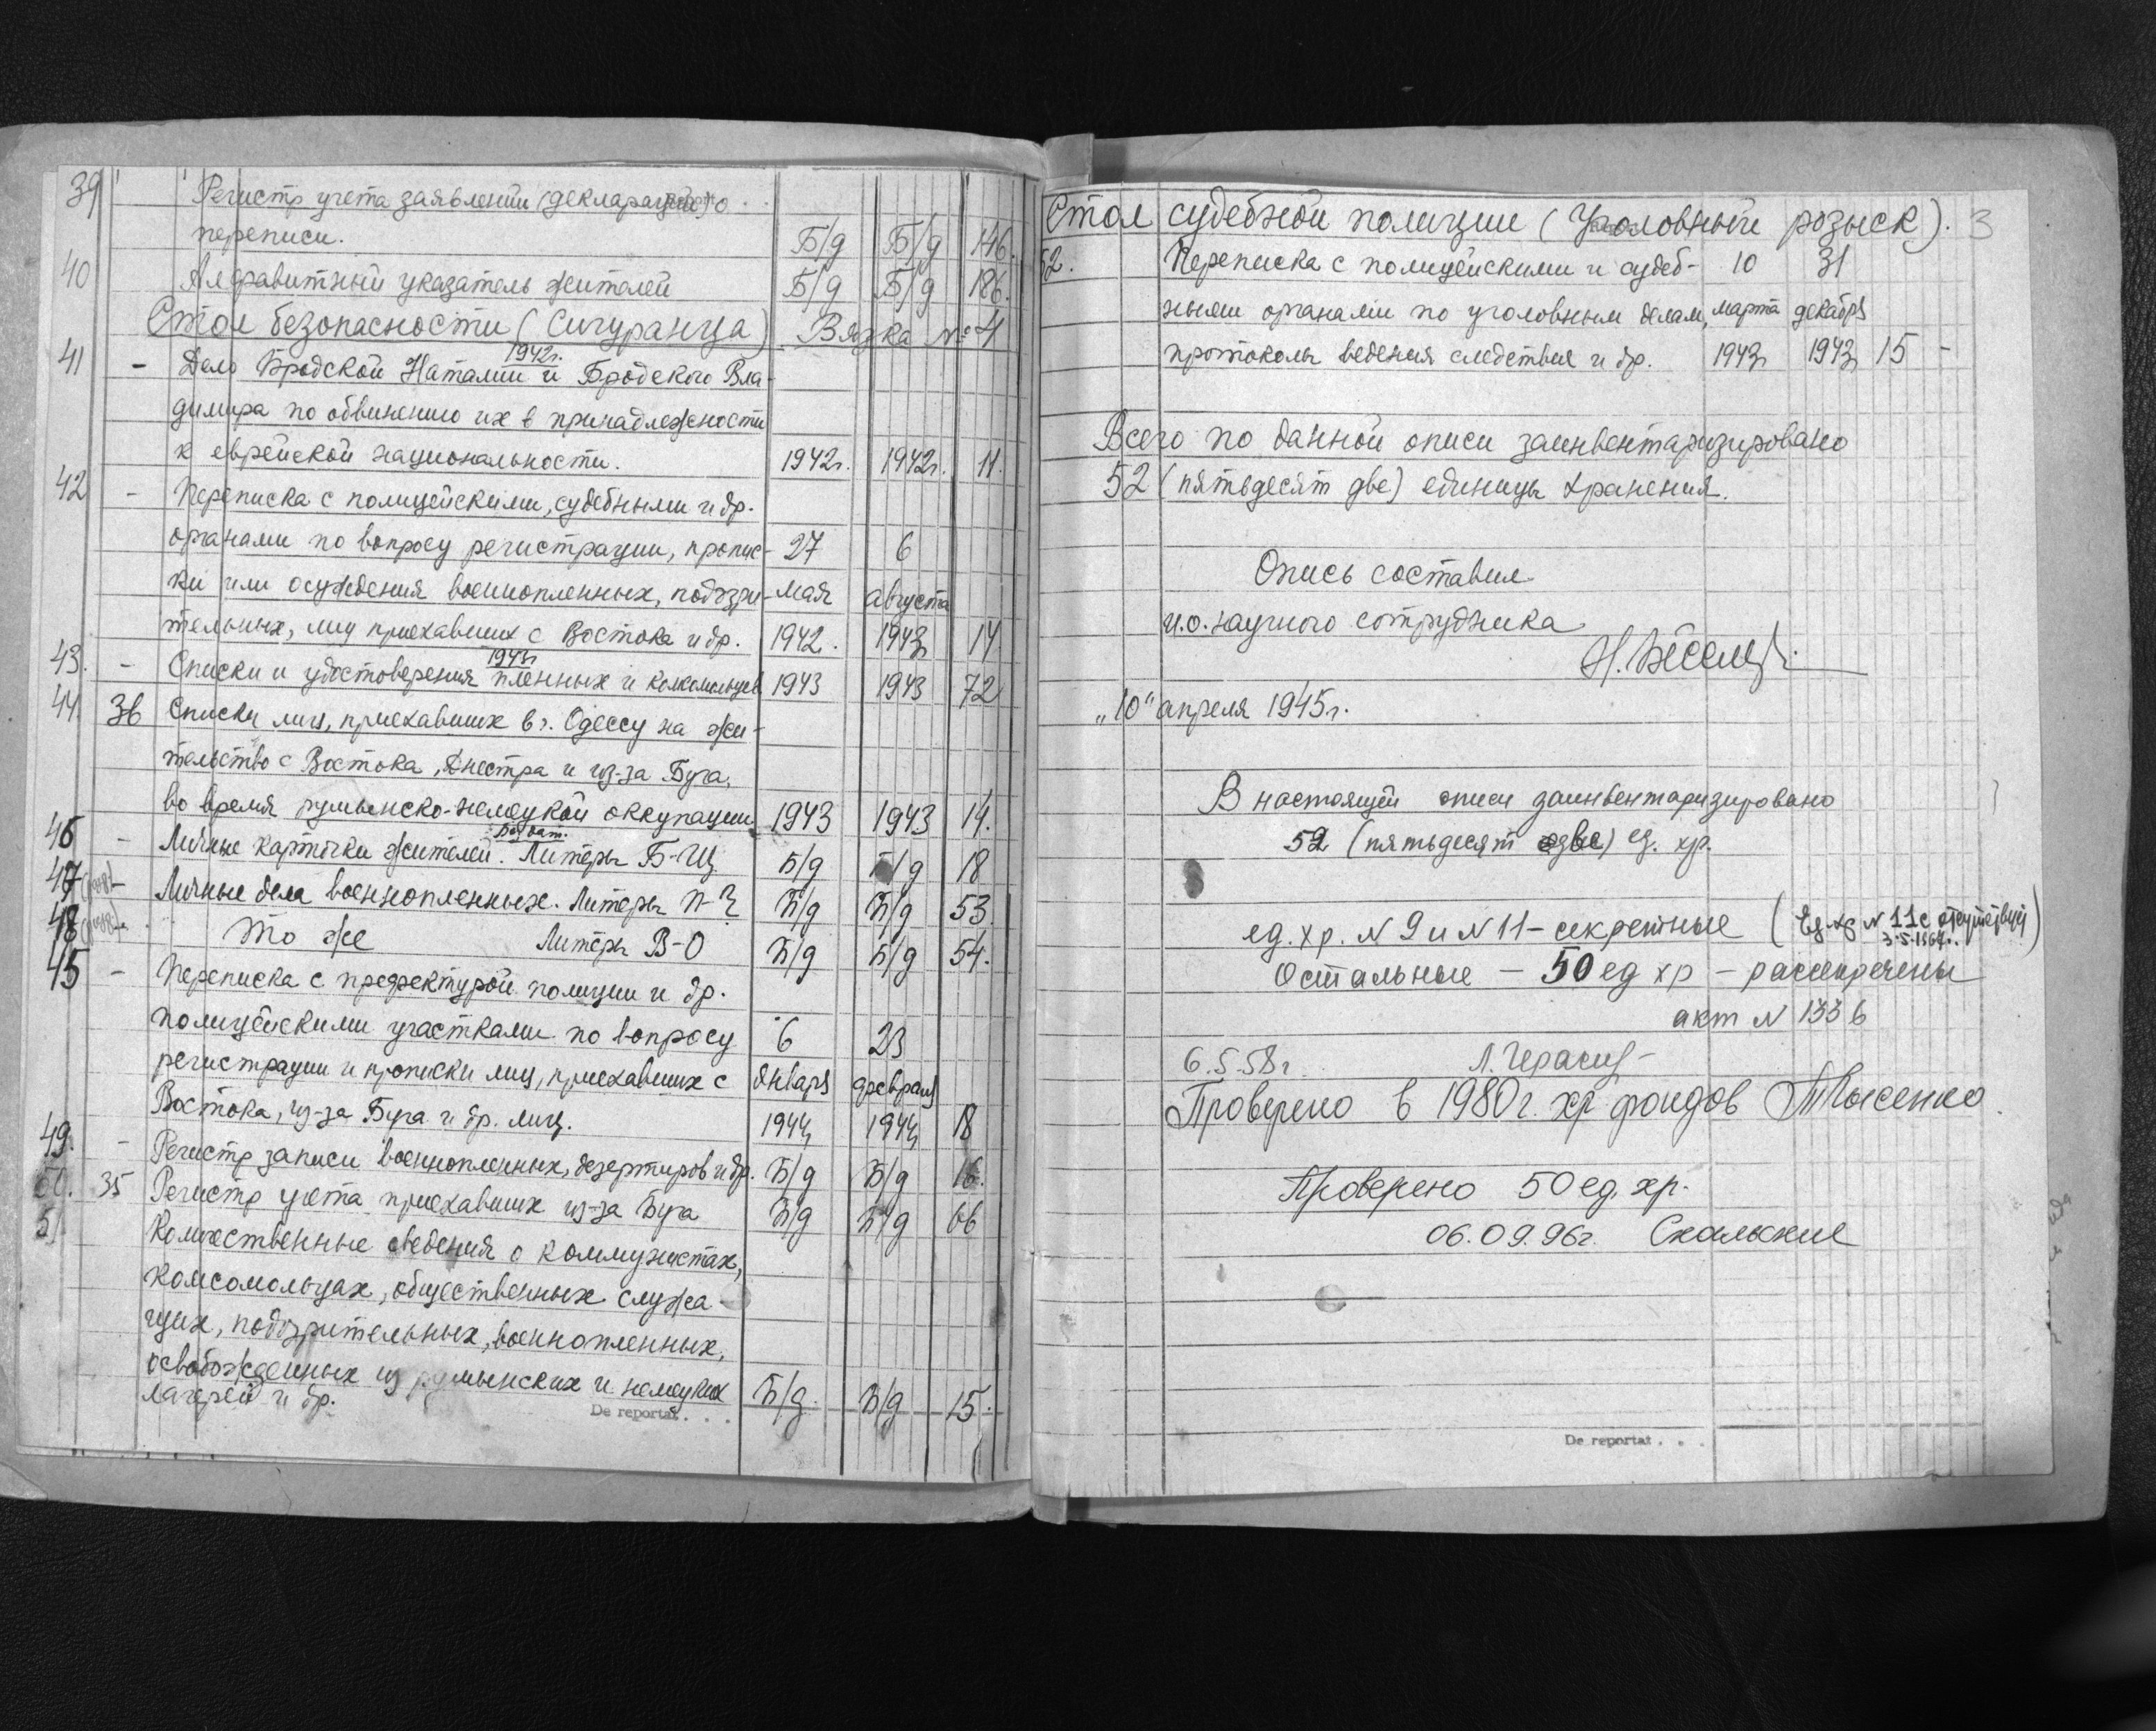 39 Регистр учета заявлений (деклараций) о
переписи. Б/д Б/д 146.
40 Алфавитный указатель жителей Б/д Б/д 186.
Стол безопасности (Сигуранца) Вязка № 4
1942г.
41 - Дело Бродской Наталии и Бродского Вла-
димира по обвинению их в принадлежности
к еврейской национальности. 1942г. 1942г. 11.
42 - Переписка с полицейскими, судебными и др.
органами по вопросу регистрации, пропис- 27 6
ки или осуждения военнопленных, подозри- мая августа
тельных, лиц приехавших с Востока и др. 1942. 1943г 14.
1943г
43. - Списки и удостоверения пленных и комсомольцев 1943 1943 72
44. 36 Списки лиц, приехавших в г. Одессу на жи-
тельство с Востока, Днестра и из-за Буга,
во время румынско-немецкой оккупации 1943 1943 14.
Без дат.
46 - Личные карточки жителей. Литеры Б-Щ Б/д Б/д 18
47 - Личные дела военнопленных. Литеры П- Б/д Б/д 53.
48 То же Литеры В-О Б/д Б/д 54.
45 - Переписка с префектурой полиции и др.
полицейскими участками по вопросу 6 23
регистрации и прописки лиц, приехавших с января февраля
Востока, из-за Буга и др. лиц. 1944г 1944г 18
49. - Регистр записи военнопленных, дезертиров и др. Б/д Б/д 16.
50. 35 Регистр учета приехавших из-за Буга Б/д Б/д 66
51. Количественные сведения о коммунистах,
комсомольцах, общественных служа-
щих, подозрительных, военнопленных,
освобожденных из румынских и немецких
лагерей и др. Б/д. Б/д 15.
De reportat . . .
Стол судебной полиции (Уголовный розыск). 3
52. Переписка с полицейскими и судеб- 10 31
ными органами по уголовным делам, марта декабря
протоколы ведения следствия и др. 1943г 1943г 15 -
Всего по данной описи заинвентаризировано
52 (пятьдесят две) единицы хранения.
Опись составил
и.о. научного сотрудника
"10" апреля 1945г.
В настоящей описи заинвентаризировано
52 (пятьдесят две) ед. хр.
ед. хр. N 9 и N 11 - секретные (Ед. хр N 11с отсутствует)
Остальные - 50 ед хр - рассекречены
акт N 133 б
6.5.58г
Проверено в 1980г. хр фондов
Проверено 50 ед. хр.
06.09.96г.
De reportat . . .